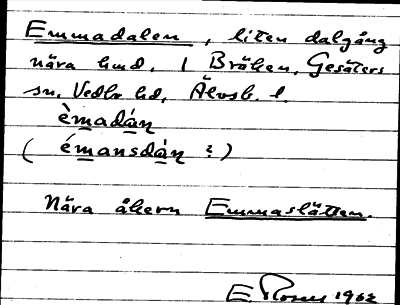 Emmadalen, liten dalgång
nära hmd. 1 Bräcken, Gesäters
sn. Vedbo hd, Älvsb. l.
èmadáṉ
( émansdáṉ ? )
Nära åkern Emmaslätten.
E. 1962